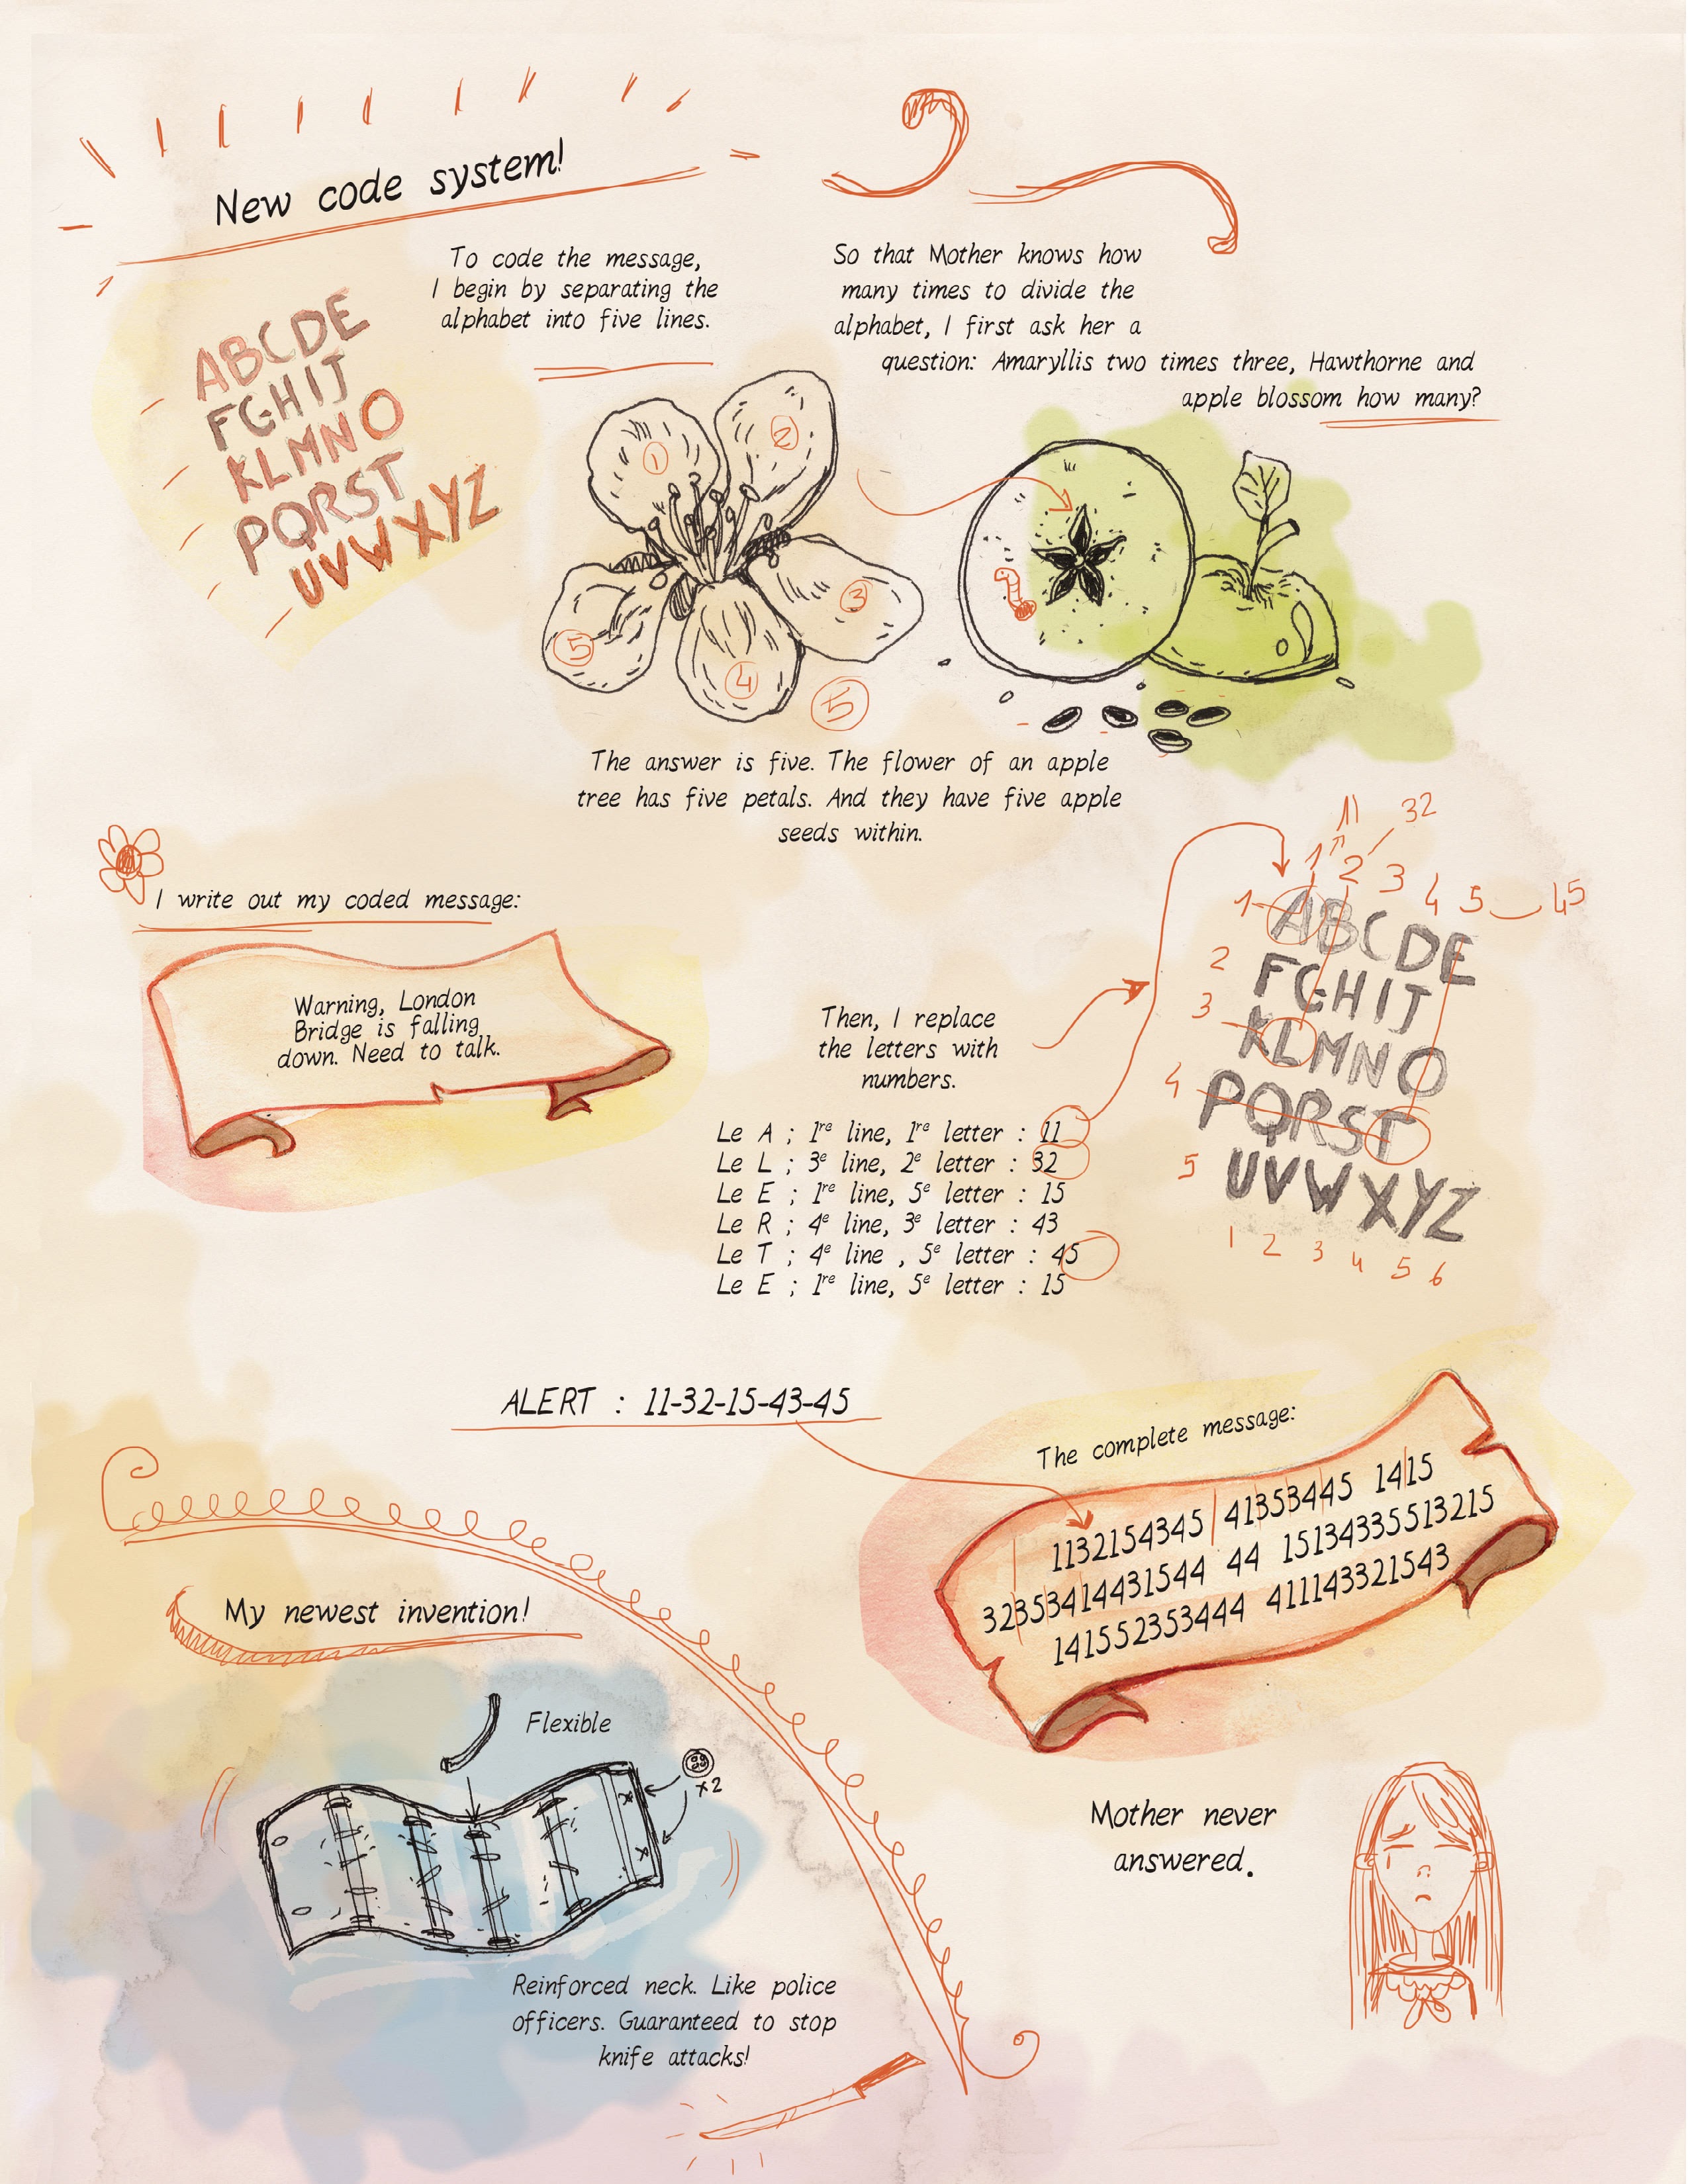 New code system!
To code the message,
I begin by separating the
alphabet into five lines.
ABCDE
FGHIJ
KLMNO
PQRST
UVWXYZ
So that Mother knows how
many times to divide the
alphabet, I first ask her a
question: Amaryllis two times three, Hawthorne and
apple blossom how many?
1
2
3
4
5
5
The answer is five. The flower of an apple
tree has five petals. And they have five apple
seeds within.
I write out my coded message:
Warning, London
Bridge is falling
down. Need to talk.
Then, I replace
the letters with
numbers.
Le A ; 1re line, 1re letter : 11
Le L ; 3e line, 2e letter : 32
Le E ; 1re line, 5e letter : 15
Le R ; 4e line, 3e letter : 43
Le T ; 4e line , 5e letter : 45
Le E ; 1re line, 5e letter : 15
11 32
1 2 3 4 5 45
1 ABCDE
2 FGHIJ
3 KLMNO
4 PQRST
5 UVWXYZ
1 2 3 4 5 6
ALERT : 11-32-15-43-45
The complete message:
1132154345 41353445 1415
32353414431544 44 15134335513215
141552353444 411143321543
My newest invention!
Flexible
x2
Reinforced neck. Like police
officers. Guaranteed to stop
knife attacks!
Mother never
answered.